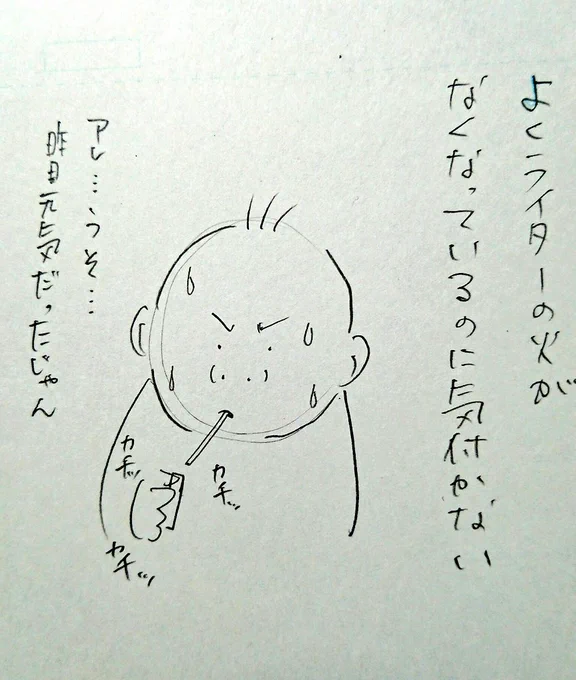 よくライターの火が
なくなっているのに気付かない
アレ…うそ…
昨日元気だったじゃん
カチッ
カチッ
カチッ